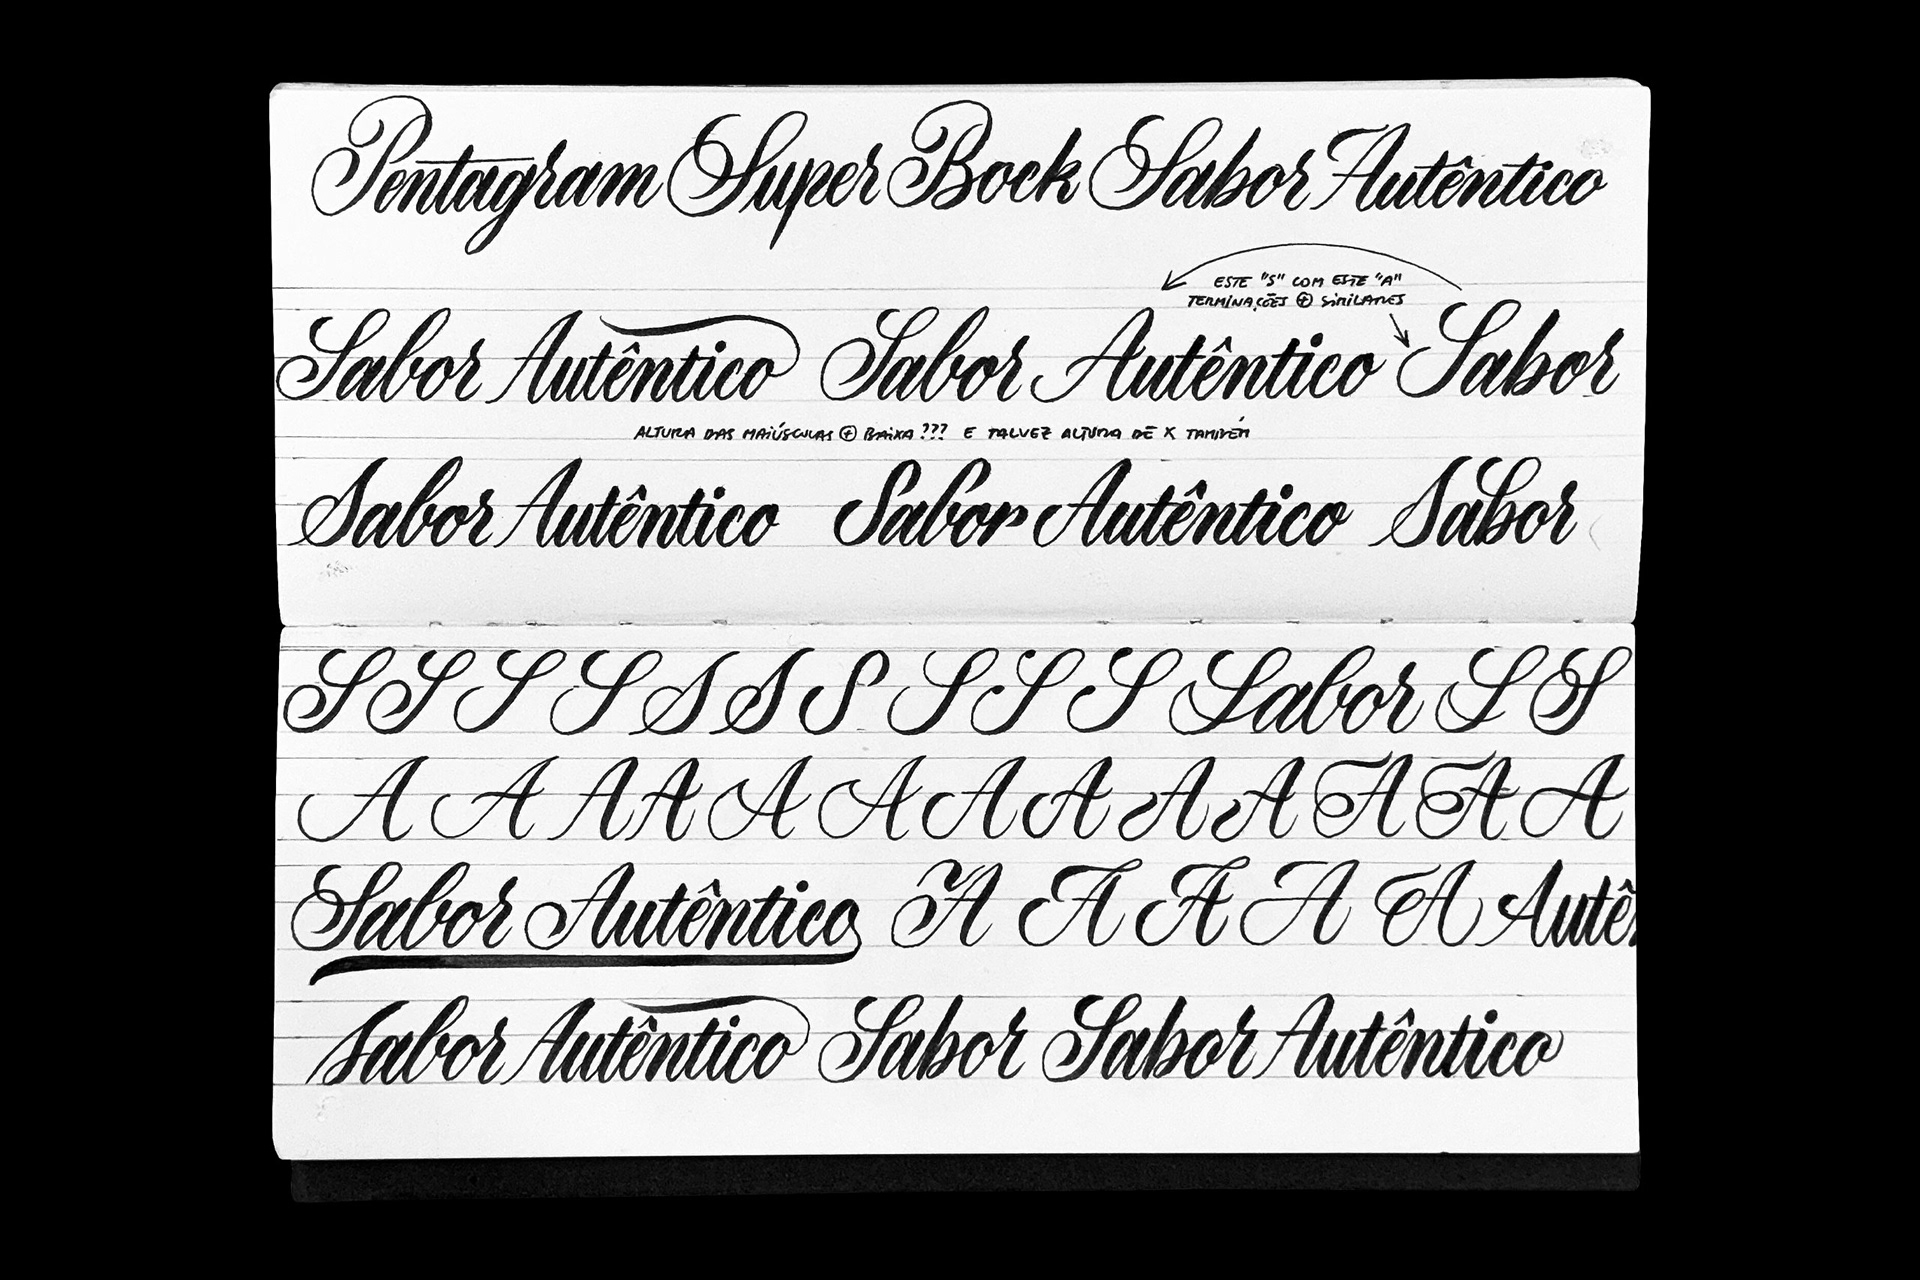 Pentagram Super Bock Sabor Autêntico
ESTE "S" COM ESTE "A"
TERMINAÇÕES ⊕ SIMILARES
Sabor Autêntico Sabor Autêntico Sabor
ALTURA DAS MAIÚSCULAS ⊕ BAIXA ??? E TALVEZ ALTURA DE X TAMBÉM
Sabor Autêntico Sabor Autêntico Sabor
S S S S S S S S S S Sabor S S
A A A A A A A A A A A A A
Sabor Autêntico A A A A A Autên
Sabor Autêntico Sabor Sabor Autêntico